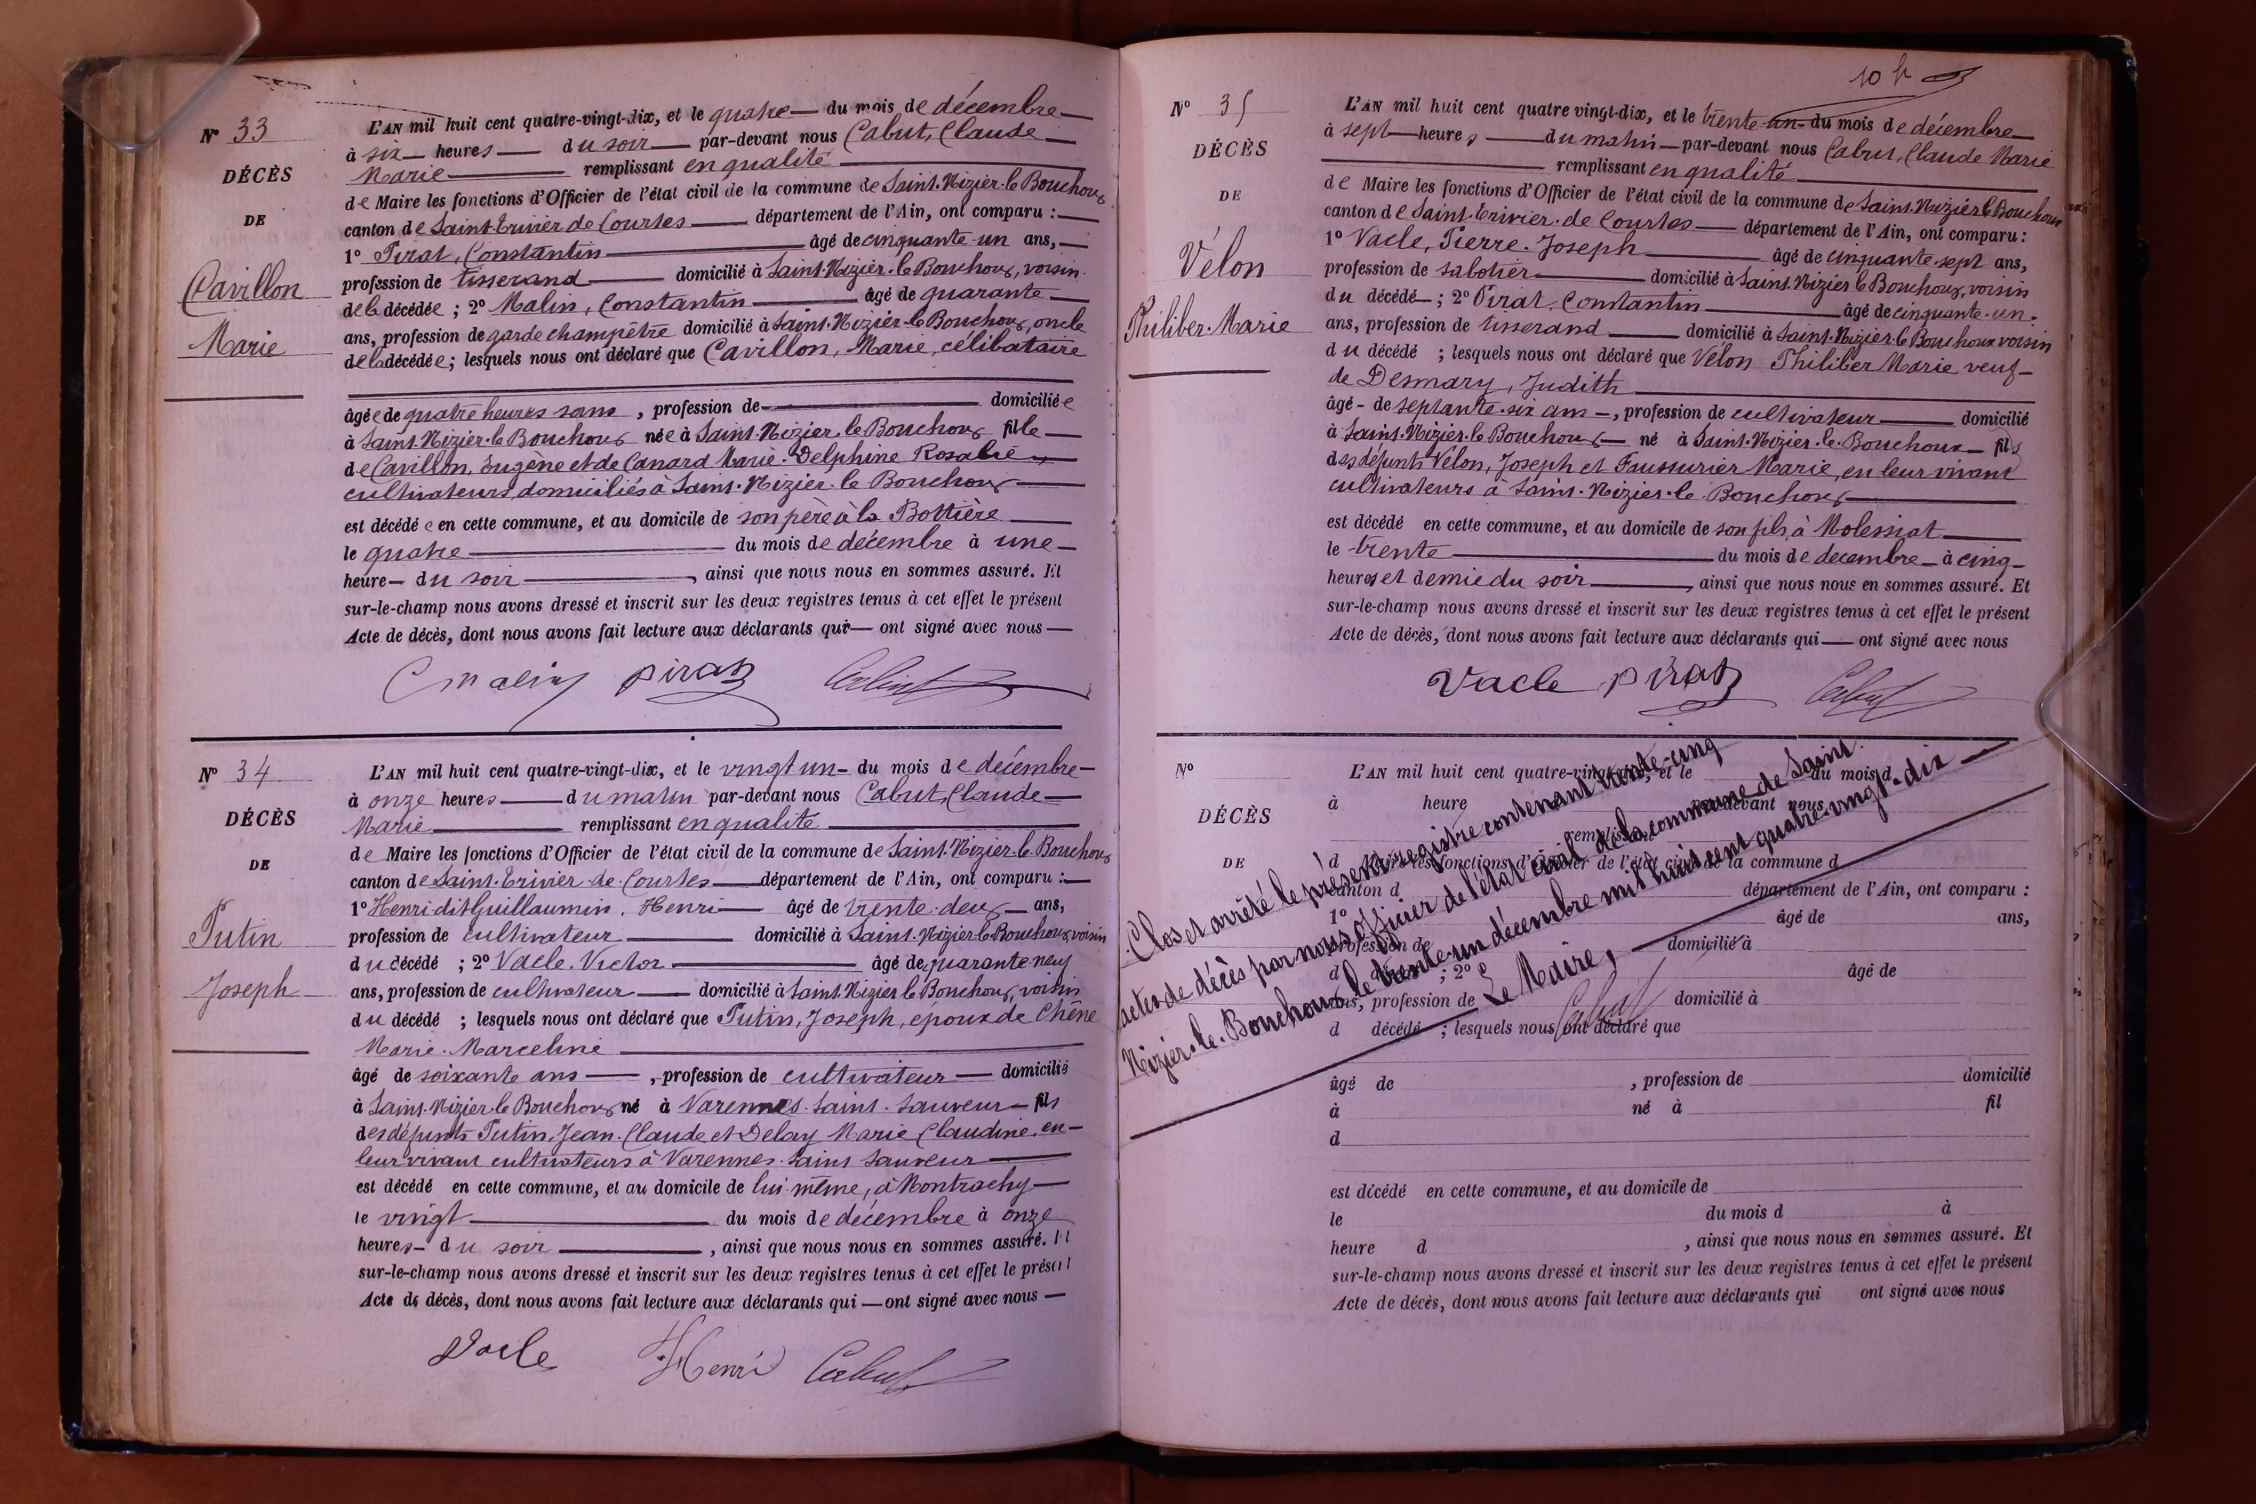 N° 33
DÉCÈS
DE
Cavillon
Marie
L'AN mil huit cent quatre-vingt-dix, et le quatre du mois de décembre
à six heures du soir par-devant nous Cabut, Claude
Marie remplissant en qualité
de Maire les fonctions d'Officier de l'état civil de la commune de Saint-Nizier-le-Bouchoux
canton de Saint-Trivier de Courtes département de l'Ain, ont comparu :
1° Pirat, Constantin âgé de cinquante-un ans,
profession de tisserand domicilié à Saint-Nizier-le-Bouchoux, voisin
de la décédée ; 2° Malin, Constantin âgé de quarante
ans, profession de garde champêtre domicilié à Saint-Nizier-le-Bouchoux, oncle
de la décédée ; lesquels nous ont déclaré que Cavillon, Marie, célibataire
âgée de quatre heures sans , profession de domiciliée
à Saint-Nizier-le-Bouchoux née à Saint-Nizier-le-Bouchoux fille
de Cavillon, Eugène et de Canard Marie-Delphine Rosalie
cultivateurs domiciliés à Saint-Nizier-le-Bouchoux
est décédée en cette commune, et au domicile de son père à la Bottière
le quatre du mois de décembre à une
heure du soir , ainsi que nous nous en sommes assuré. Et
sur-le-champ nous avons dressé et inscrit sur les deux registres tenus à cet effet le présent
Acte de décès, dont nous avons fait lecture aux déclarants qui ont signé avec nous
C Malin Pirat Cabut
N° 34
DÉCÈS
DE
Putin
Joseph
L'AN mil huit cent quatre-vingt-dix, et le vingt un du mois de décembre
à onze heures du matin par-devant nous Cabut, Claude
Marie remplissant en qualité
de Maire les fonctions d'Officier de l'état civil de la commune de Saint-Nizier-le-Bouchoux
canton de Saint-Trivier-de-Courtes département de l'Ain, ont comparu :
1° Henri dit Guillaumin, Henri âgé de trente-deux ans,
profession de cultivateur domicilié à Saint-Nizier-le-Bouchoux, voisin
du décédé ; 2° Vacle, Victor âgé de quarante neuf
ans, profession de cultivateur domicilié à Saint-Nizier le Bouchoux, voisin
du décédé ; lesquels nous ont déclaré que Putin, Joseph, époux de Chêne
Marie-Marceline
âgé de soixante ans , profession de cultivateur domicilié
à Saint-Nizier-le-Bouchoux né à Varennes-Saint-Sauveur fils
des défunts Putin, Jean-Claude et Delay Marie Claudine, en
leur vivant cultivateurs à Varennes-Saint Sauveur
est décédé en cette commune, et au domicile de lui-même, à Montrachy
le vingt du mois de décembre à onze
heures du soir , ainsi que nous nous en sommes assuré. Et
sur-le-champ nous avons dressé et inscrit sur les deux registres tenus à cet effet le présent
Acte de décès, dont nous avons fait lecture aux déclarants qui ont signé avec nous
Vacle Henri Cabut
N° 35
DÉCÈS
DE
Vélon
Philiber-Marie
L'AN mil huit cent quatre vingt-dix, et le trente-un du mois de décembre
à sept heures du matin par-devant nous Cabut, Claude Marie
remplissant en qualité
de Maire les fonctions d'Officier de l'état civil de la commune de Saint-Nizier-le-Bouchoux
canton de Saint-Trivier-de-Courtes département de l'Ain, ont comparu :
1° Vacle, Pierre-Joseph âgé de cinquante-sept ans,
profession de sabotier domicilié à Saint-Nizier le Bouchoux, voisin
du décédé ; 2° Pirat, Constantin âgé de cinquante-un
ans, profession de tisserand domicilié à Saint-Nizier-le-Bouchoux voisin
du décédé ; lesquels nous ont déclaré que Vélon Philiber Marie veuf
de Desmary, Judith
âgé de septante-six ans , profession de cultivateur domicilié
à Saint-Nizier-le-Bouchoux né à Saint-Nizier-le-Bouchoux fils
des défunts Vélon, Joseph et Faussurier Marie, en leur vivant
cultivateurs à Saint-Nizier-le-Bouchoux
est décédé en cette commune, et au domicile de son fils, à Molessiat
le trente du mois de decembre à cinq
heures et demie du soir , ainsi que nous nous en sommes assuré. Et
sur-le-champ nous avons dressé et inscrit sur les deux registres tenus à cet effet le présent
Acte de décès, dont nous avons fait lecture aux déclarants qui ont signé avec nous
Vacle Pirat Cabut
N°
DÉCÈS
DE
L'AN mil huit cent quatre-vingt-dix, et le du mois d
à heure par-devant nous
remplissant
d Maire les fonctions d'Officier de l'état civil de la commune d
canton d département de l'Ain, ont comparu :
1° âgé de ans,
profession de domicilié à
d décédé ; 2° âgé de
ans, profession de domicilié à
d décédé ; lesquels nous ont déclaré que
âgé de , profession de domicilié
à né à fil
d
est décédé en cette commune, et au domicile de
le du mois d à
heure d , ainsi que nous nous en sommes assuré. Et
sur-le-champ nous avons dressé et inscrit sur les deux registres tenus à cet effet le présent
Acte de décès, dont nous avons fait lecture aux déclarants qui ont signé avec nous
Clos et arrêté le présent registre contenant trente-cinq
actes de décès par nous officier de l'état civil de la commune de Saint
Nizier-le-Bouchoux le trente-un décembre mil huit cent quatre-vingt-dix
Le Maire,
Cabut